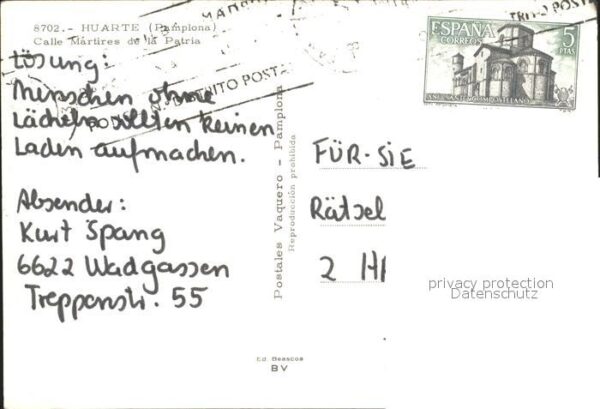 8702.- HUARTE (Pamplona)
Calle Mártires de la Patria
Lösung:
Menschen ohne
Lächeln sollten keinen
Laden aufmachen.
Absender:
Kurt Spang
6622 Wadgassen
Treppenstr. 55
Postales Vaquero - Pamplona
Reproducción prohibida
Ed. Beascoa
BV
DISTRITO POSTAL
ESPAÑA
CORREOS
5
PTAS
FÜR-SIE
Rätsel
2 H
privacy protection
Datenschutz